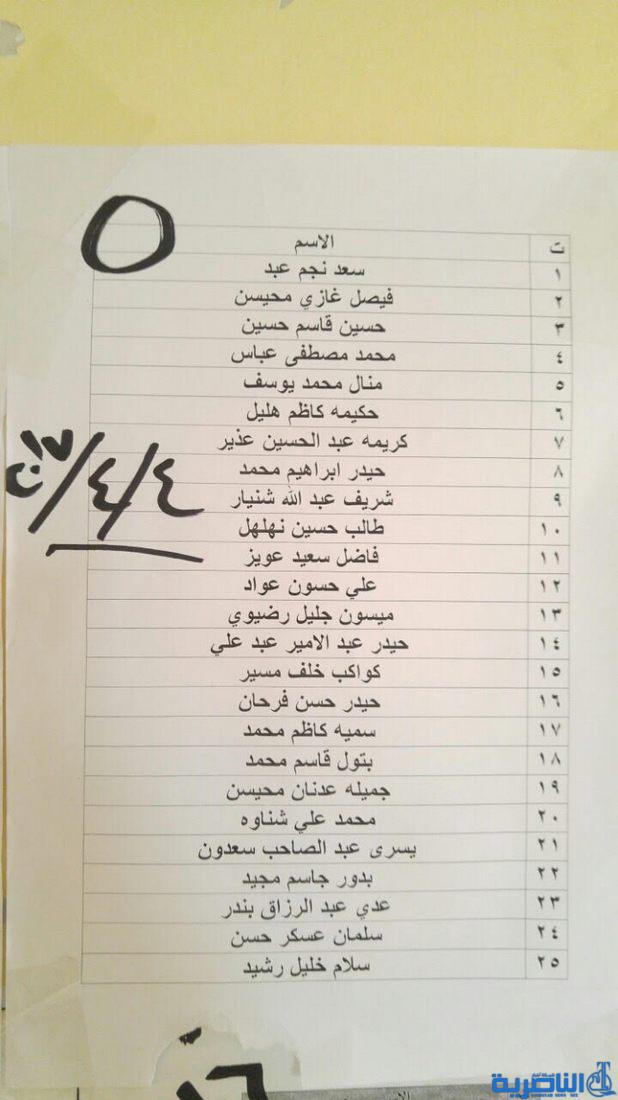 ت الاسم
١ سعد نجم عبد
٢ فيصل غازي محيسن
٣ حسين قاسم حسين
٤ محمد مصطفى عباس
٥ منال محمد يوسف
٦ حكيمه كاظم هليل
٧ كريمه عبد الحسين عذير
٨ حيدر ابراهيم محمد
٩ شريف عبد الله شنيار
١٠ طالب حسين نهلهل
١١ فاضل سعيد عويز
١٢ علي حسون عواد
١٣ ميسون جليل رضيوي
١٤ حيدر عبد الامير عبد علي
١٥ كواكب خلف مسير
١٦ حيدر حسن فرحان
١٧ سميه كاظم محمد
١٨ بتول قاسم محمد
١٩ جميله عدنان محيسن
٢٠ محمد علي شناوه
٢١ يسرى عبد الصاحب سعدون
٢٢ بدور جاسم مجيد
٢٣ عدي عبد الرزاق بندر
٢٤ سلمان عسكر حسن
٢٥ سلام خليل رشيد
٤/٤/
الناصرية